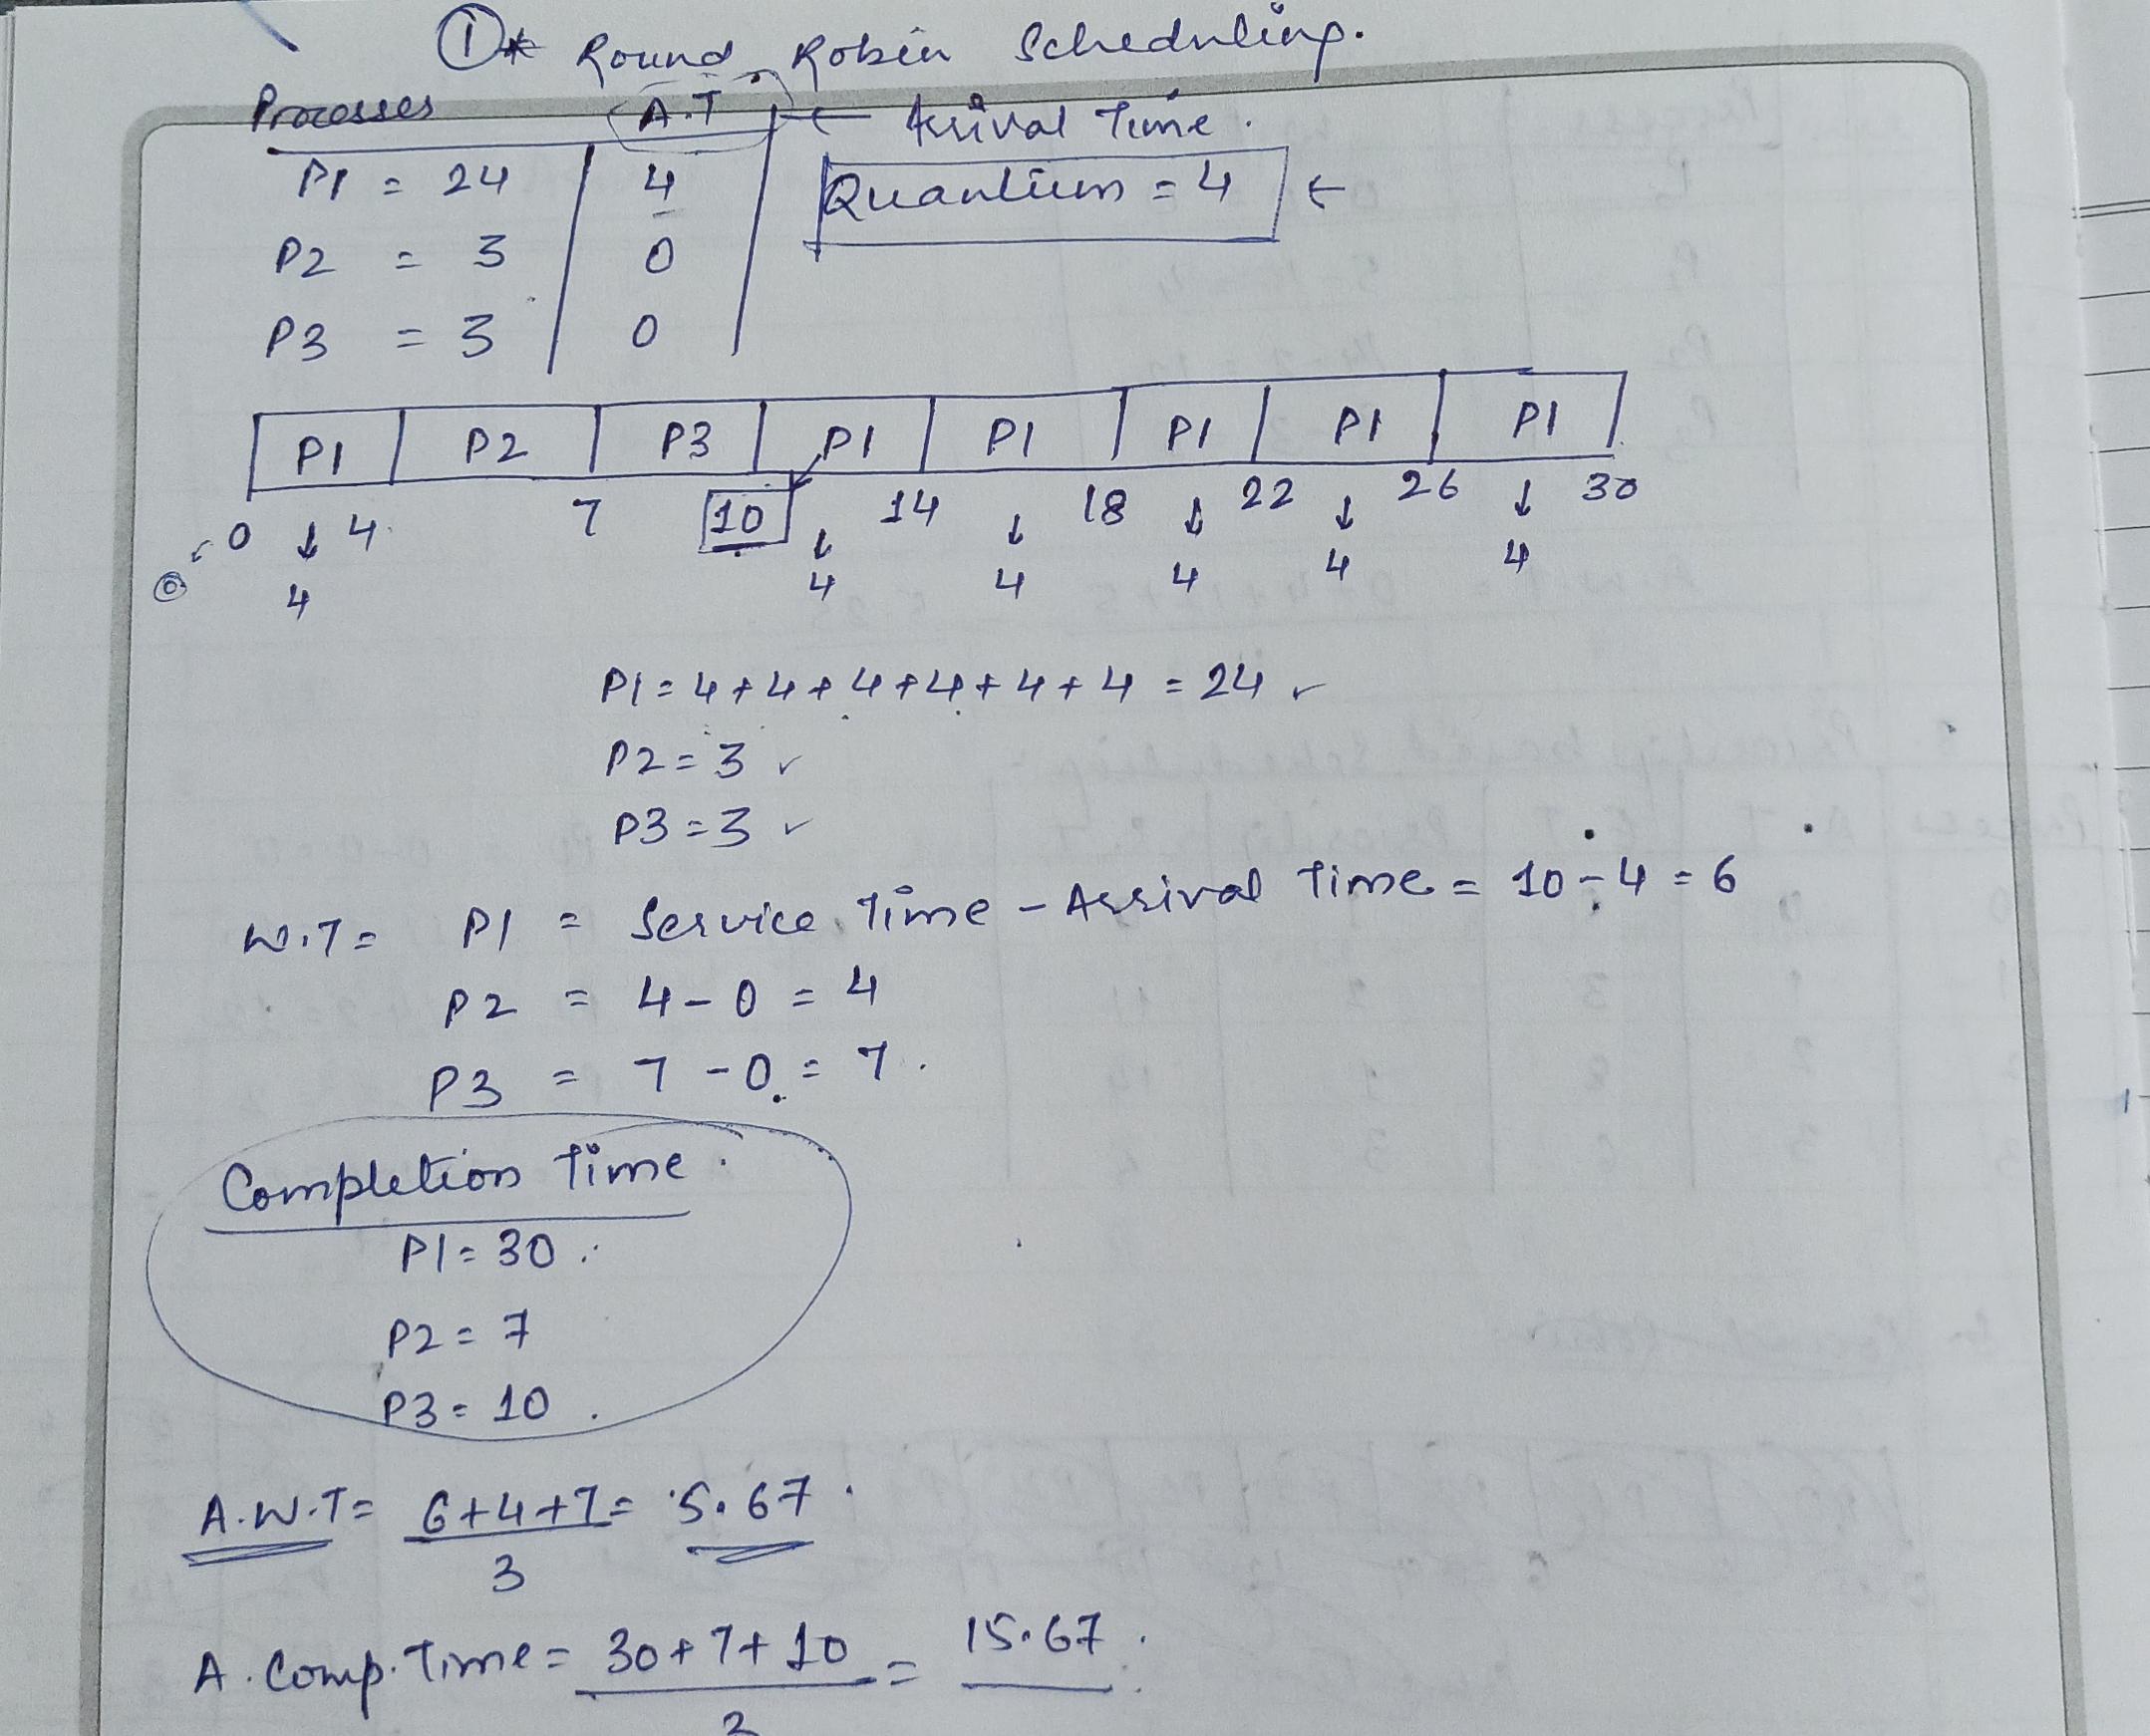 ① * Round Robin Scheduling.
Processes A.T ← Arrival Time.
P1 = 24 4 Quantium = 4 ←
P2 = 3 0
P3 = 3 0
P1 P2 P3 P1 P1 P1 P1 P1
0 ↓ 4 7 10 ↓ 14 ↓ 18 ↓ 22 ↓ 26 ↓ 30
4 4 4 4 4 4
P1 = 4 + 4 + 4 + 4 + 4 + 4 = 24 ✓
P2 = 3 ✓
P3 = 3 ✓
W.T = P1 = Service Time - Arrival Time = 10 - 4 = 6
P2 = 4 - 0 = 4
P3 = 7 - 0 = 7.
Completion Time.
P1 = 30.
P2 = 7
P3 = 10.
A.W.T = 6+4+7 = 5.67.
3
A. Comp. Time = 30 + 7 + 10 = 15.67.
3